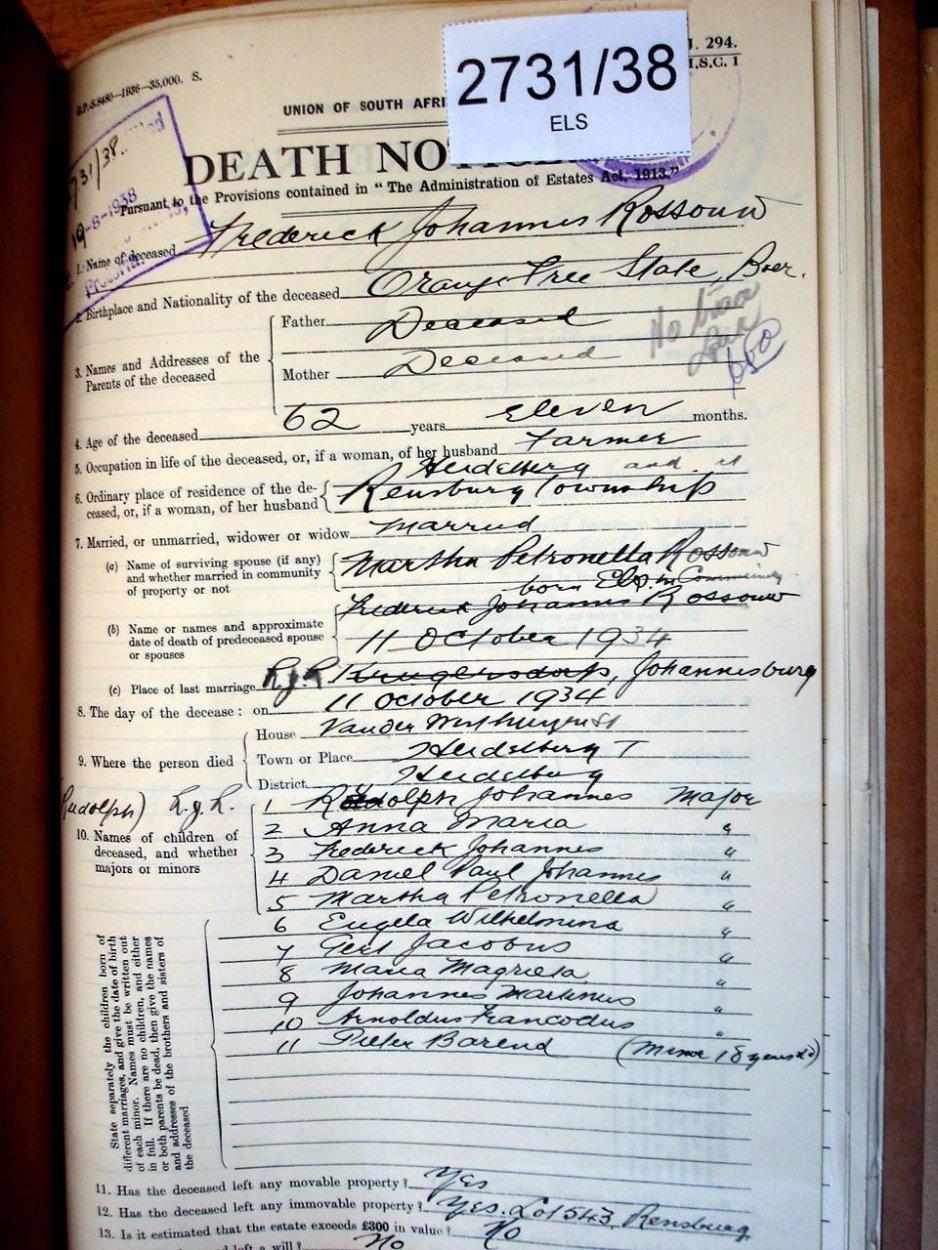 G.P.-S.8480—1936—35,000. S.
J. 294.
2731/38
ELS
UNION OF SOUTH AFRI
DEATH NOTICE
Pursuant to the Provisions contained in "The Administration of Estates Act, 1913."
731/38.
19-8-1938
1. Name of deceased Frederick Johannes Rossouw
2. Birthplace and Nationality of the deceased Orange Free State, Boer.
3. Names and Addresses of the Parents of the deceased
Father Deceased
Mother Deceased
4. Age of the deceased 62 years eleven months.
5. Occupation in life of the deceased, or, if a woman, of her husband Farmer
Heidelberg and at
6. Ordinary place of residence of the deceased, or, if a woman, of her husband Rensburg Township
7. Married, or unmarried, widower or widow Married
(a) Name of surviving spouse (if any) and whether married in community of property or not Martha Petronella Rossouw
born Els in Community
(b) Name or names and approximate date of death of predeceased spouse or spouses Frederick Johannes Rossouw
11 October 1934
(c) Place of last marriage Krugersdorp, Johannesburg
8. The day of the decease: on 11 October 1934
9. Where the person died
House
Town or Place Heidelberg T
District Heidelberg
(Rudolph)
10. Names of children of deceased, and whether majors or minors
1 Rudolph Johannes Major
2 Anna Maria "
3 Frederick Johannes "
4 Daniel Paul Johannes "
5 Martha Petronella "
6 Eugela Wilhelmina "
7 Gert Jacobus "
8 Maria Magrieta "
9 Johannes Martinus "
10 Arnoldus Francodus "
11 Pieter Barend (Minor 18 years
State separately the children born of
different marriages, and give the date of birth
of each minor. Names must be written out
in full. If there are no children, and either
or both parents be dead, then give the names
and addresses of the brothers and sisters of
the deceased
11. Has the deceased left any movable property? Yes
12. Has the deceased left any immovable property? Yes. Lot 543 Rensburg
13. Is it estimated that the estate exceeds £300 in value? No
left a will? No